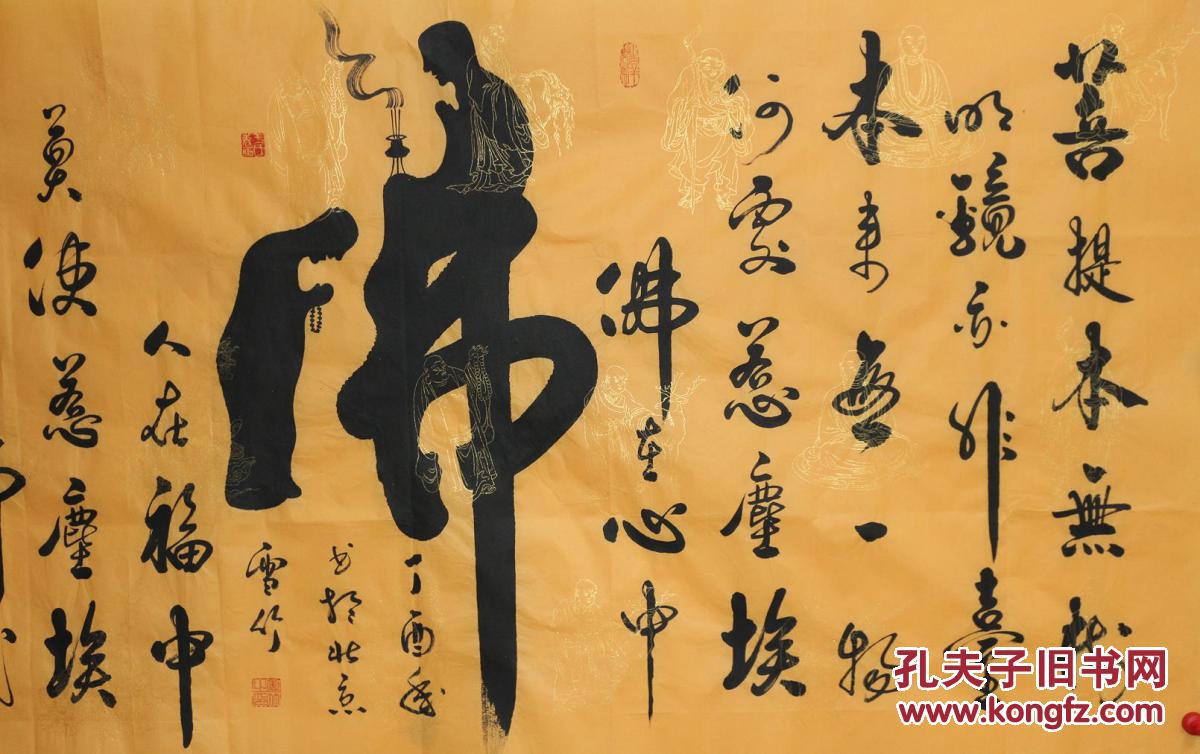 菩提本無樹
明鏡亦非臺
本來無一物
何處惹塵埃
佛在心中
佛
丁酉年
书於北京
雪竹
人在福中
莫使惹塵埃
孔夫子旧书网
www.kongfz.com